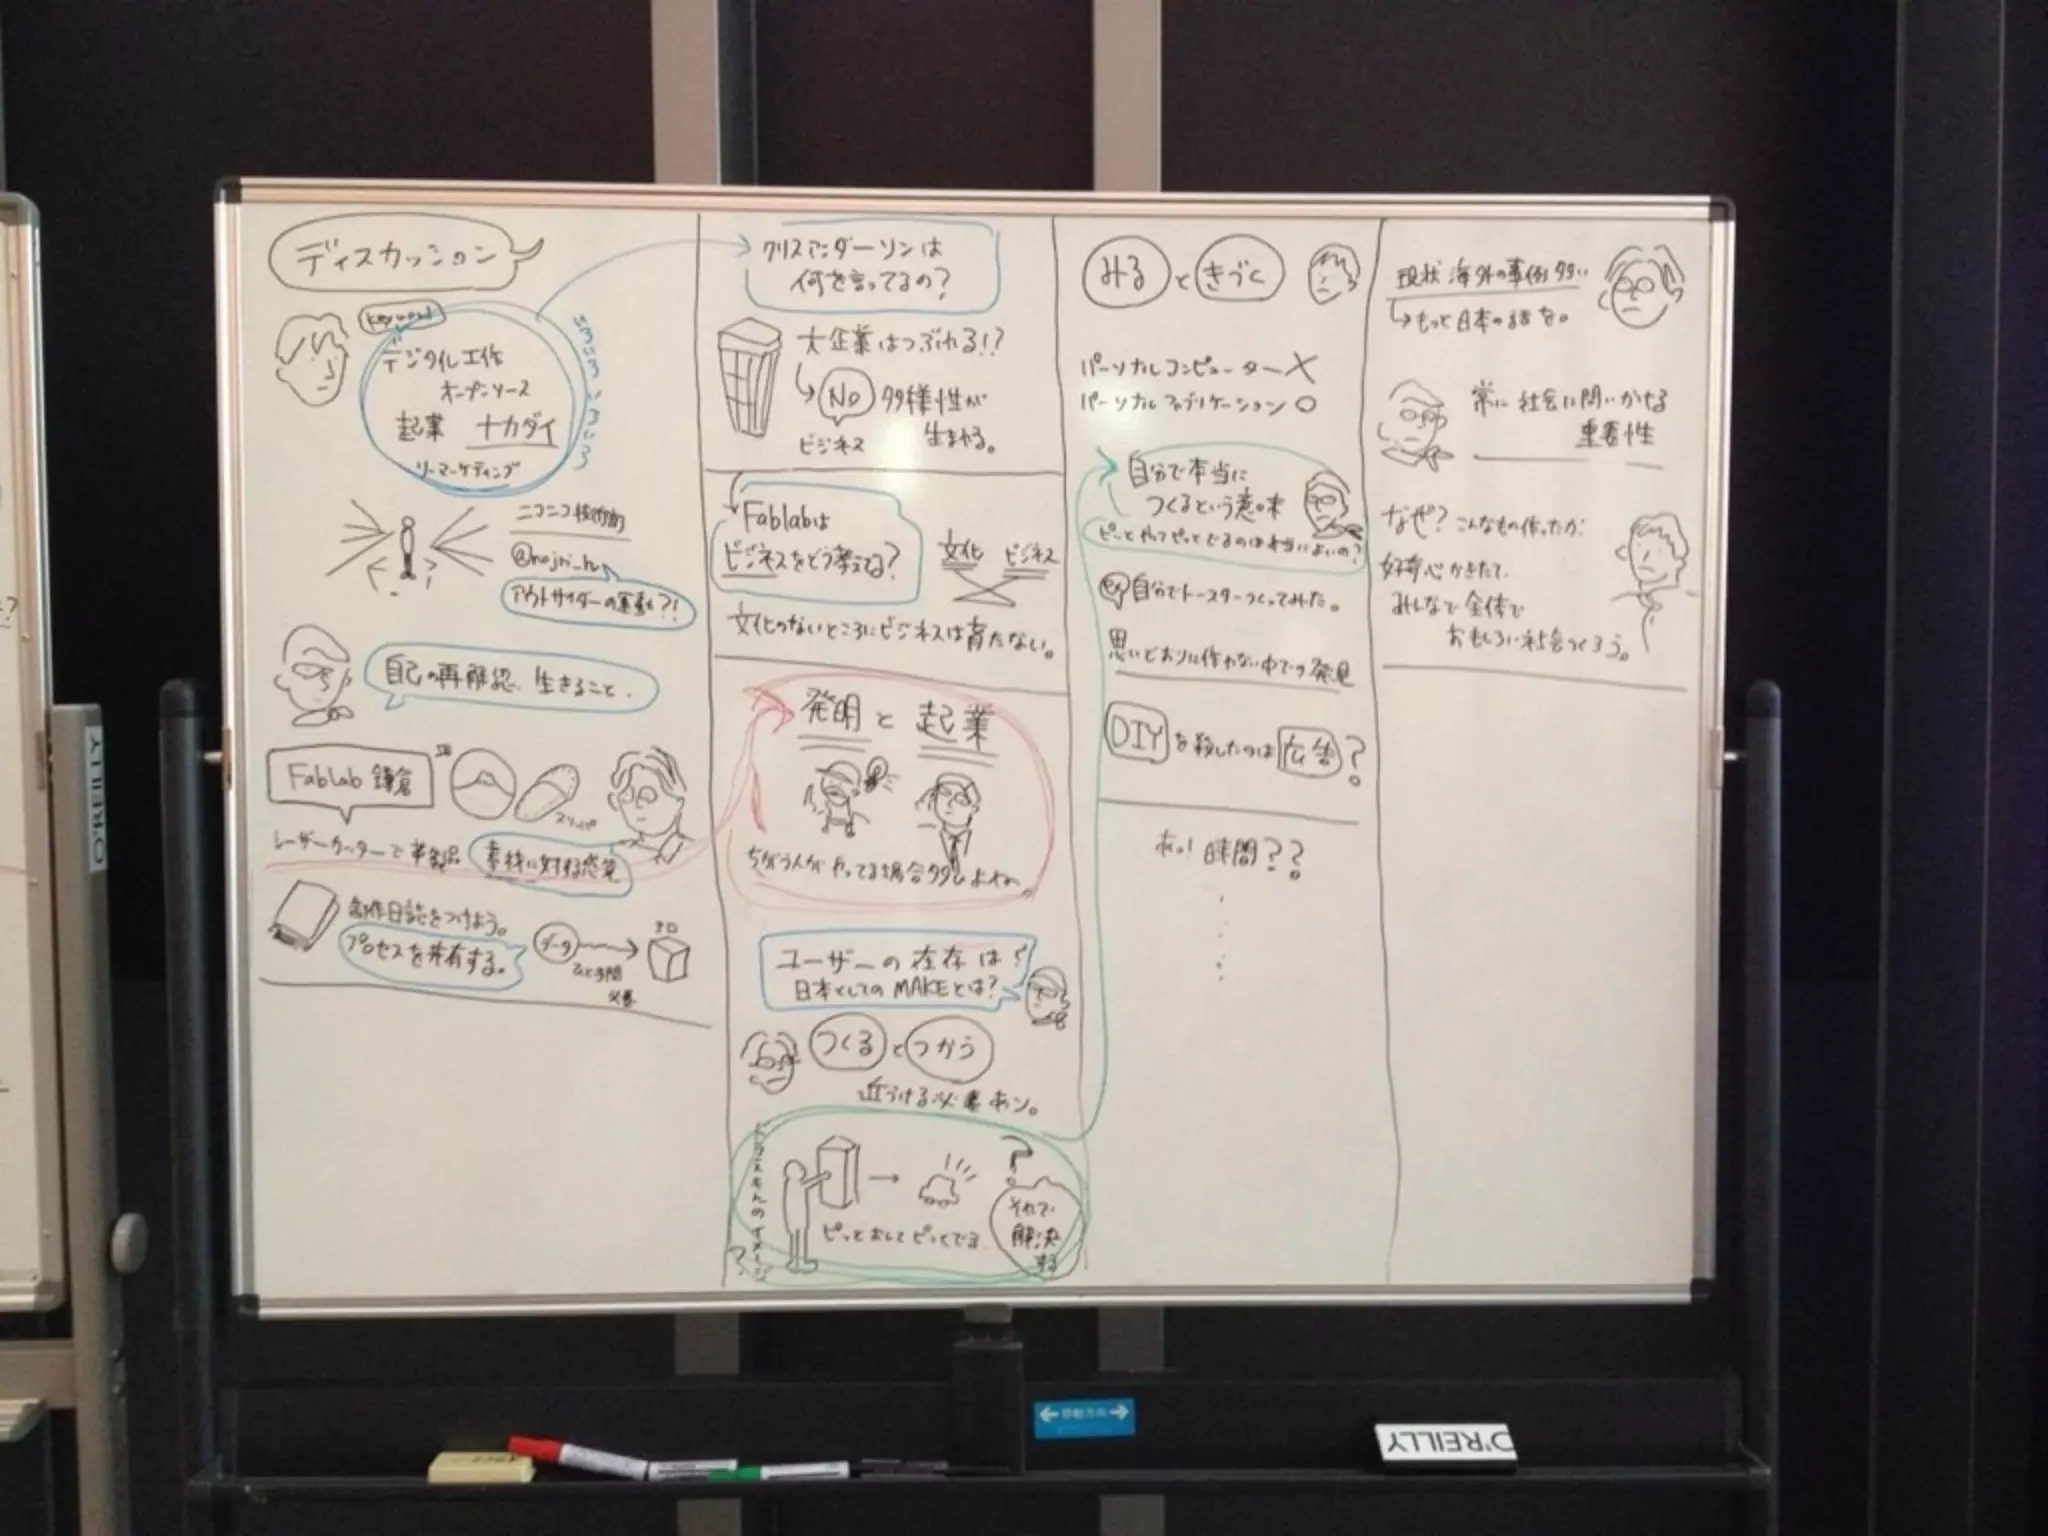 ディスカッション
keyword
デジタル工作
オープンソース
起業 ナカダイ
ソーマーケティング
いろいろ いろいろ
ニコニコ技術部
@nojri_h
アウトサイダーの運動?!
自己の再確認、生きること、
FabLab 鎌倉
スリッパ
レーザーカッターで革製品
素材に対する感覚
創作日誌をつけよう。
プロセスを共有する。
データ
ひと手間
必要
3D
クリスアンダーソンは
何を言ってるの?
大企業はつぶれる!?
No 多様性が
生まれる。
ビジネス
Fablabは
ビジネスをどう考えてる?
文化 ビジネス
文化のないところにビジネスは育たない。
発明と起業
ちがう人がやってる場合多いよね。
ユーザーの存在は?
日本としてのMAKEとは?
つくる と つかう
近づける必要アン。
ピッとおしてピッとでる
それで
解決
する
みる と きづく
パーソナルコンピューター ×
パーソナルファブリケーション ○
自分で本当に
つくるという意味
ピッとやってピッとでるのは本当によいの?
自分でトースターつくってみた。
思いどおりに作れない中での発見
DIY を殺したのは 広告?
あっ! 時間??
現状 海外の事例多い
もっと日本の話を。
常に社会に問いかける
重要性
なぜ? こんなもの作ったか?
好奇心かきたて、
みんなで全体で
おもしろい社会つくろう。
O'REILLY
O'REILLY